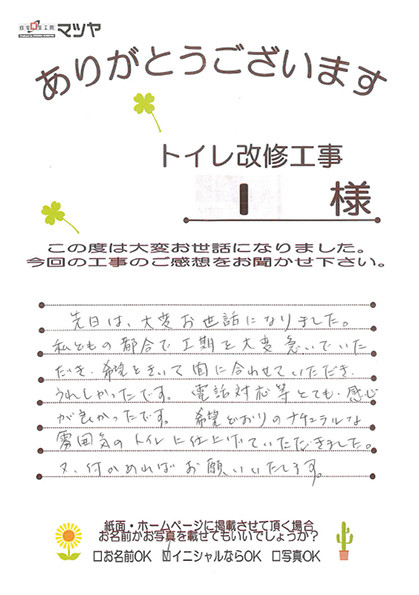 住宅工房 マツヤ
ありがとうございます
トイレ改修工事
I 様
この度は大変お世話になりました。
今回の工事のご感想をお聞かせ下さい。
先日は、大変お世話になりました。
私どもの都合で工期を大変急いでいた
だき、希望をきいて間に合わせていただき、
うれしかったです。電話対応等とても、感じ
が良かったです。希望どおりのナチュラルな
雰囲気のトイレに仕上げていただきました。
又、何かあればお願いいたします。
紙面・ホームページに掲載させて頂く場合
お名前かお写真を載せてもいいでしょうか?
□お名前OK ☑イニシャルならOK □写真OK